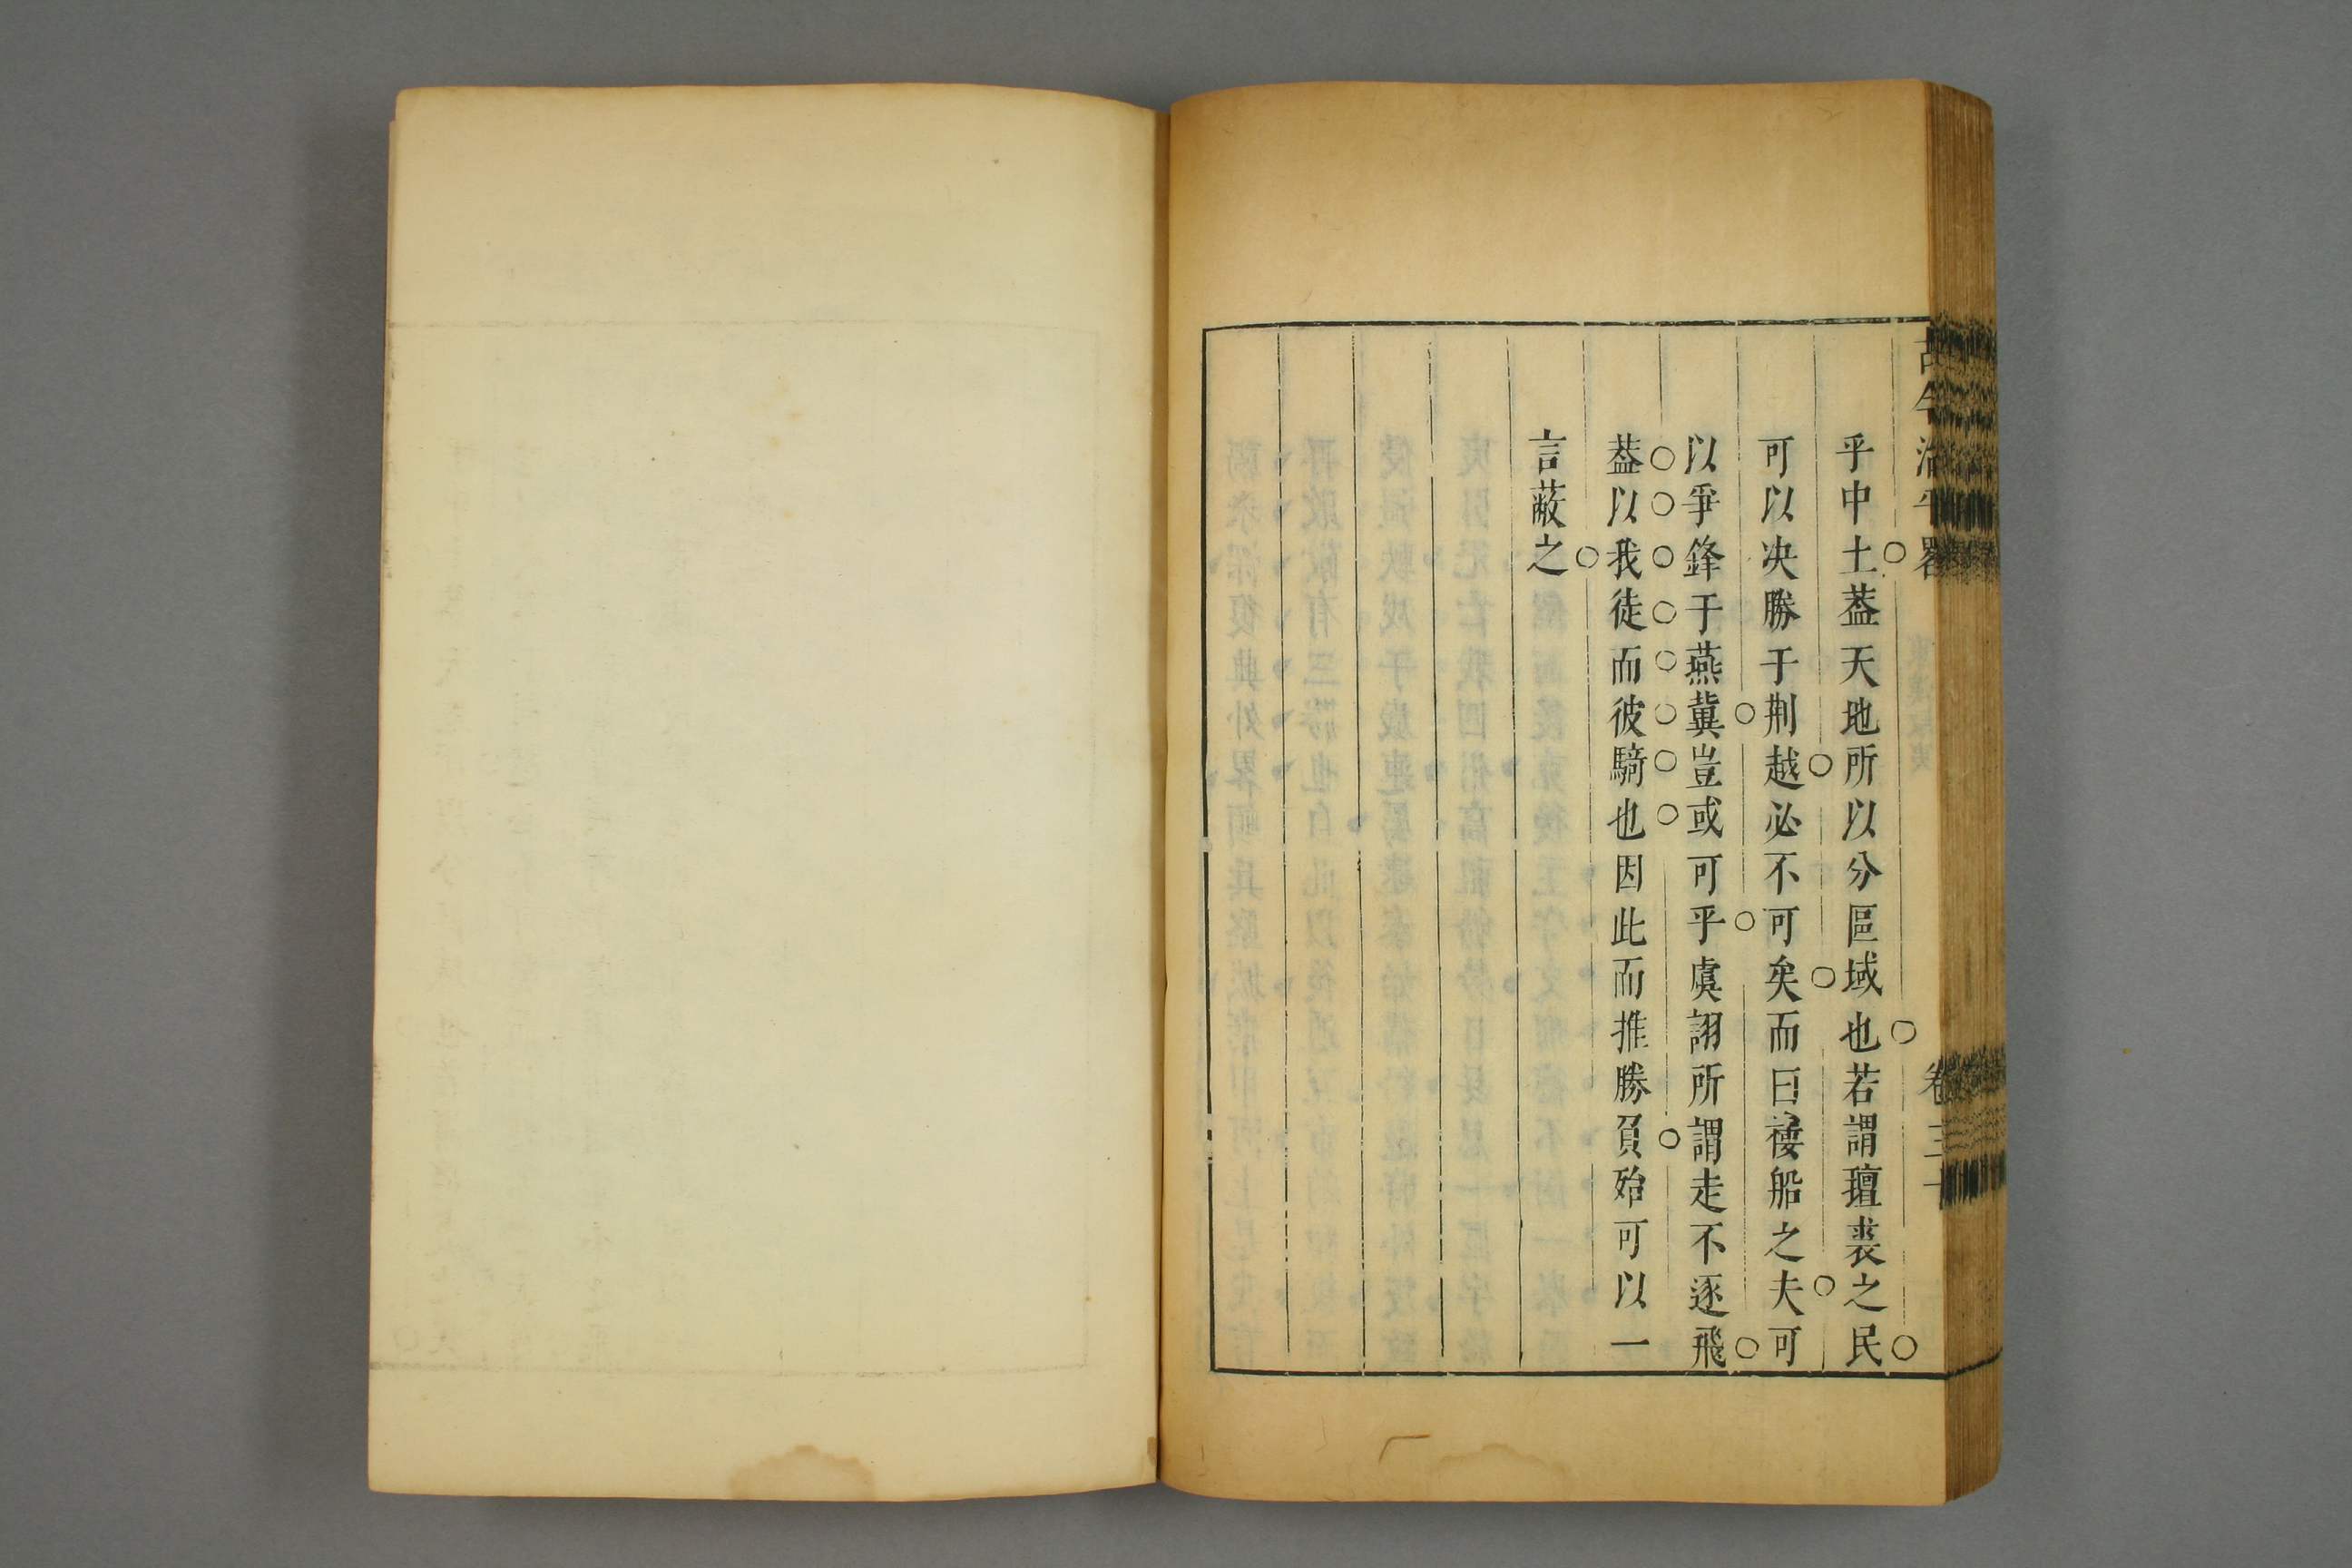 乎中土葢天地所以分區域也若謂氊裘之民
可以决勝于荆越必不可矣而曰䅹船之夫可
以爭鋒于燕冀豈或可乎虞詡所謂走不逐飛
葢以我徒而彼騎也因此而推勝負殆可以一
言蔽之
卷三十